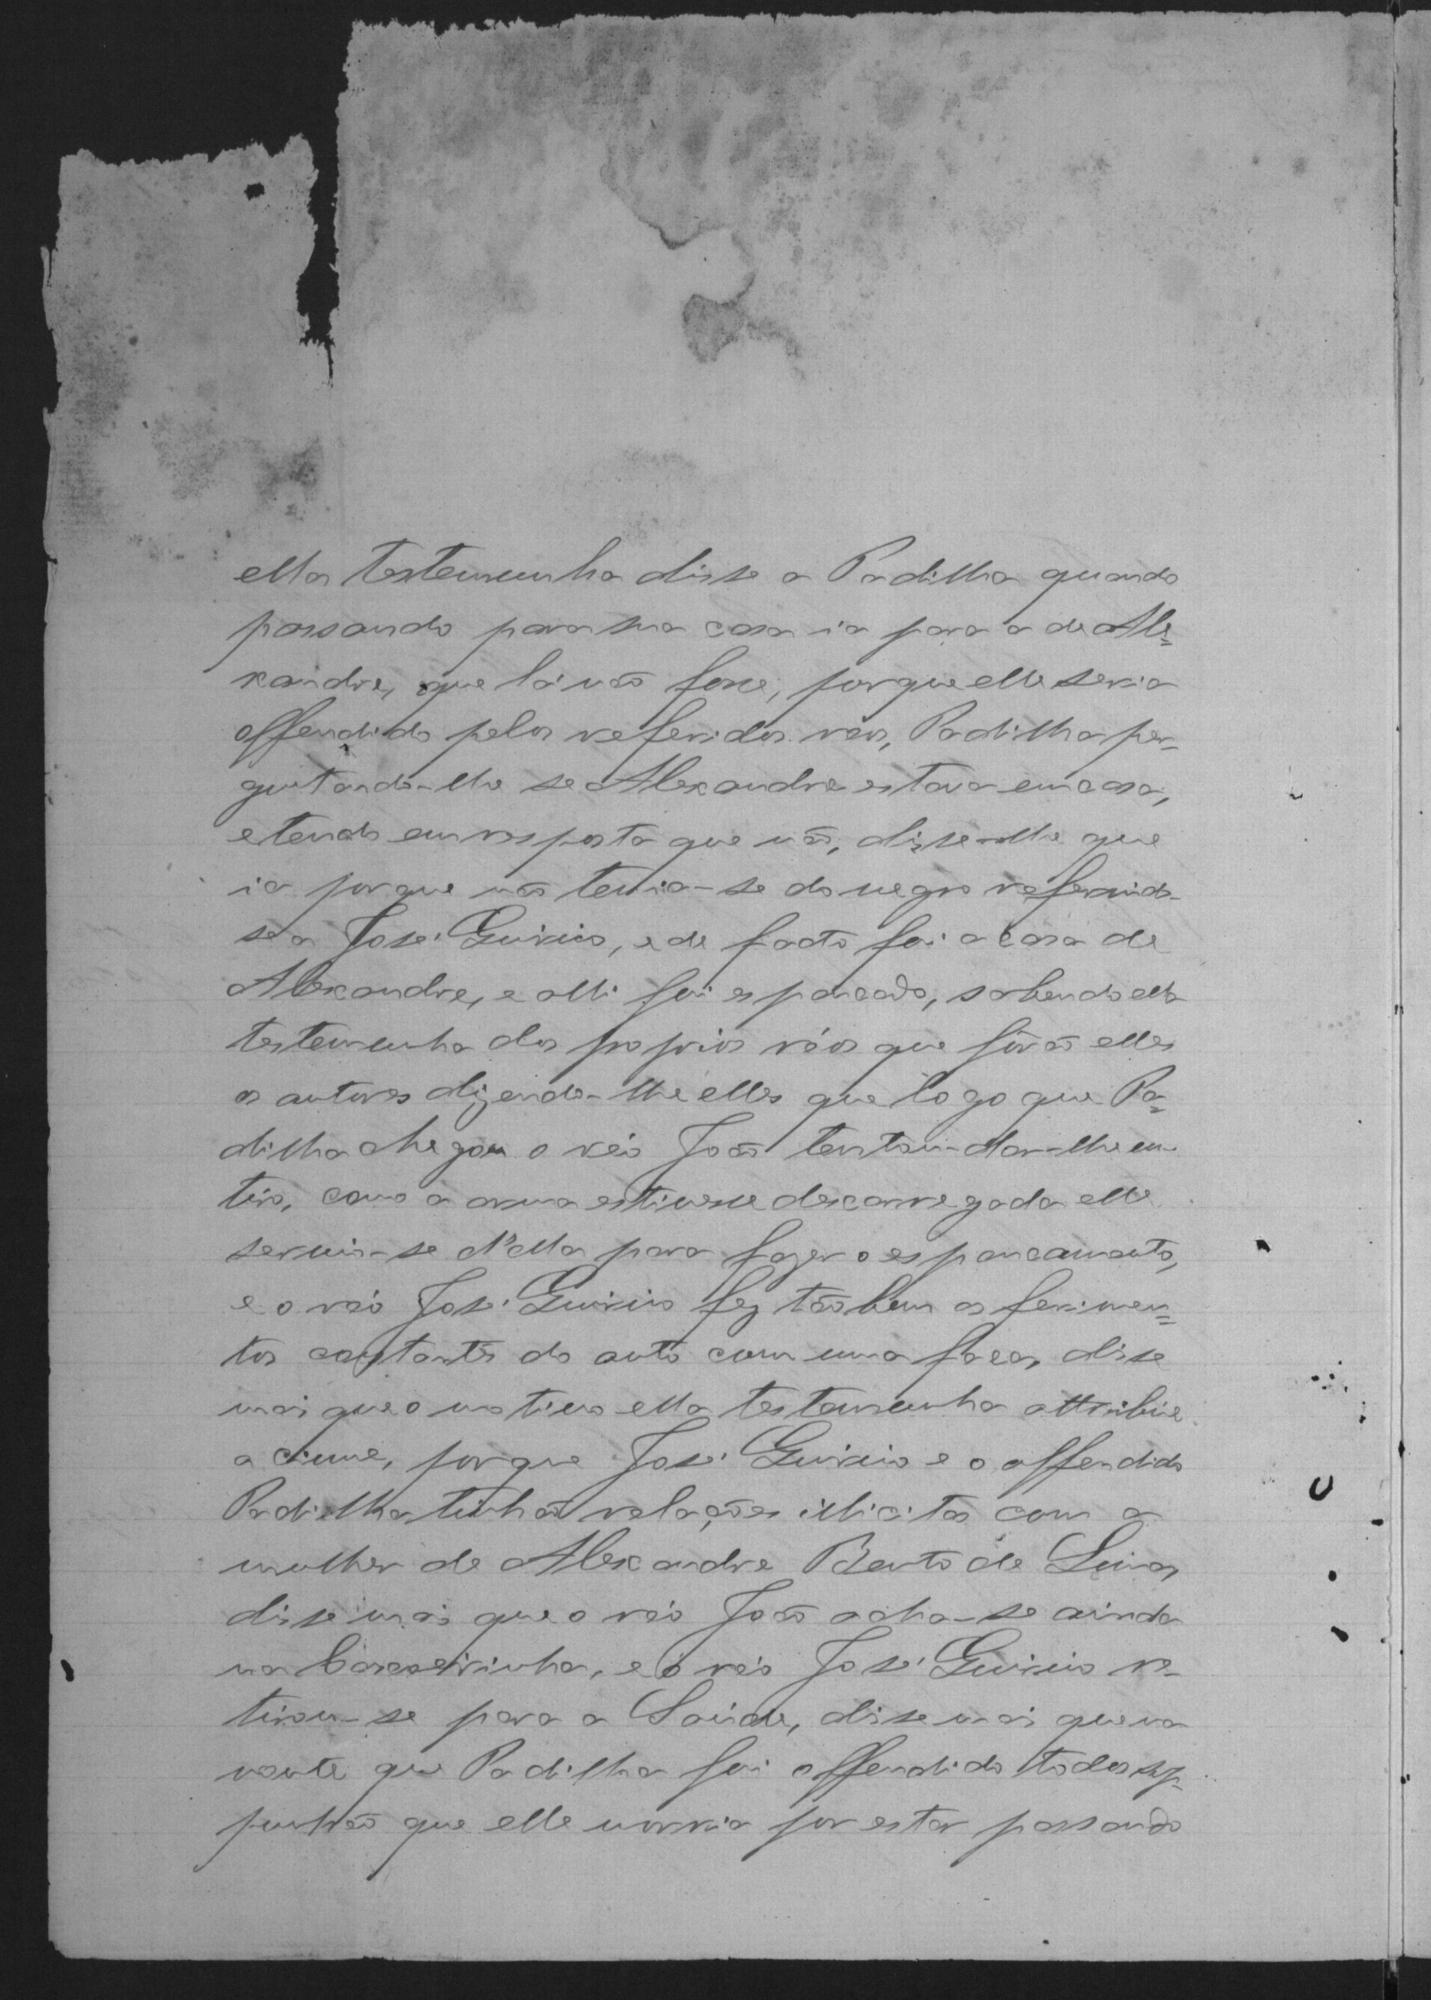 ella testemunha disse a Padilha quando
passando para sua casa ia para a de Ale=
xandre, que lá não fosse, porque elle seria
offendido pelos referidos réos, Padilha per-
guntando-lhe se Alexandre estava em casa,
e tendo em resposta que não, disse-lhe que
ia porque não temia-se do negro referindo-
se a José Quirino, e de facto foi a casa de
Alexandre, e alli foi espancado, sabendo ella
testemunha dos proprios réos que forão elles
os autores dizendo-lhe elles que logo que Pa=
dilha chegou o réo João tentou dar-lhe um
tiro, como a arma estivesse descarregada elle
serviu-se d'ella para fazer o espancamento,
e o réo José Quirino fez tãobem os ferimen=
tos constantes do auto com uma faca, disse
mais que o motivo ella testemunha attribue
a ciume, porque José Quirino e o offendido
Padilha tinhão relações illicitas com a
mulher de Alexandre Bento de Lima,
disse mais que o réo João acha-se ainda
na e o réo José Quirino re-
tirou-se para a Saúde, disse mais que na
noute que Padilha foi offendido todos sup-
punhão que elle morria por estar passando